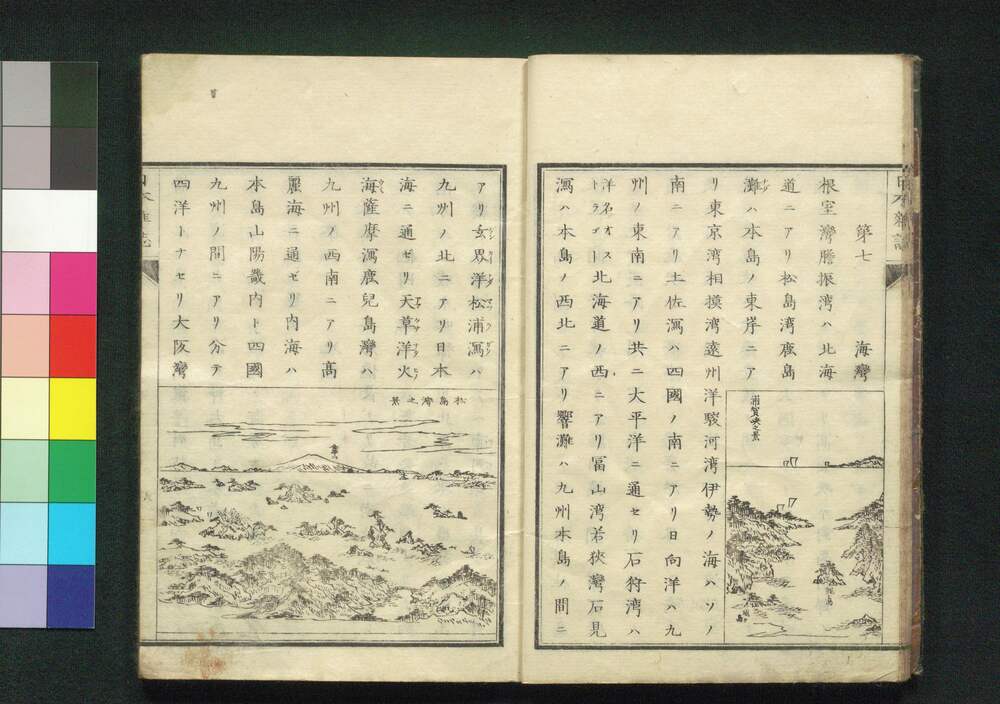 第七　海灣
根室灣膽振湾ハ北海
道ニアリ松島湾鹿島
灘ハ本島ノ東岸ニア
リ東京湾相摸湾遠州洋駿河湾伊勢ノ海ハソノ
南ニアリ土佐灣ハ四國ノ南ニアリ日向洋ハ九
州ノ東南ニアリ共ニ大平洋ニ通セリ石狩湾ハ
北海道ノ西ニアリ冨山湾若狹灣石見
灣ハ本島ノ西北ニアリ響灘ハ九州本島ノ間ニ
浦賀峡之景
アリ玄界洋松浦灣ハ
九州ノ北ニアリ日本
海ニ通ゼリ天草洋火
海薩摩灣鹿兒島灣ハ
九州ノ西南ニアリ高
麗海ニ通ゼリ内海ハ
本島山陽畿内ト四國
九州ノ間ニアリ分テ
四洋トナセリ大阪灣
松島湾之景